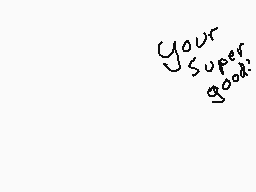 your
super
good!